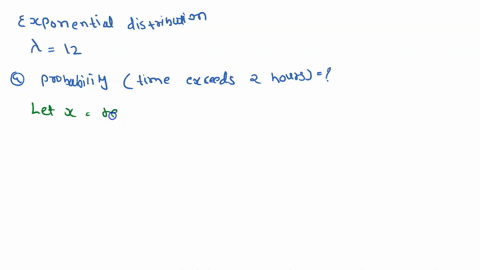 Exponential distribution
λ = 12
ⓐ probability (time exceeds 2 hours) = ?
Let x =